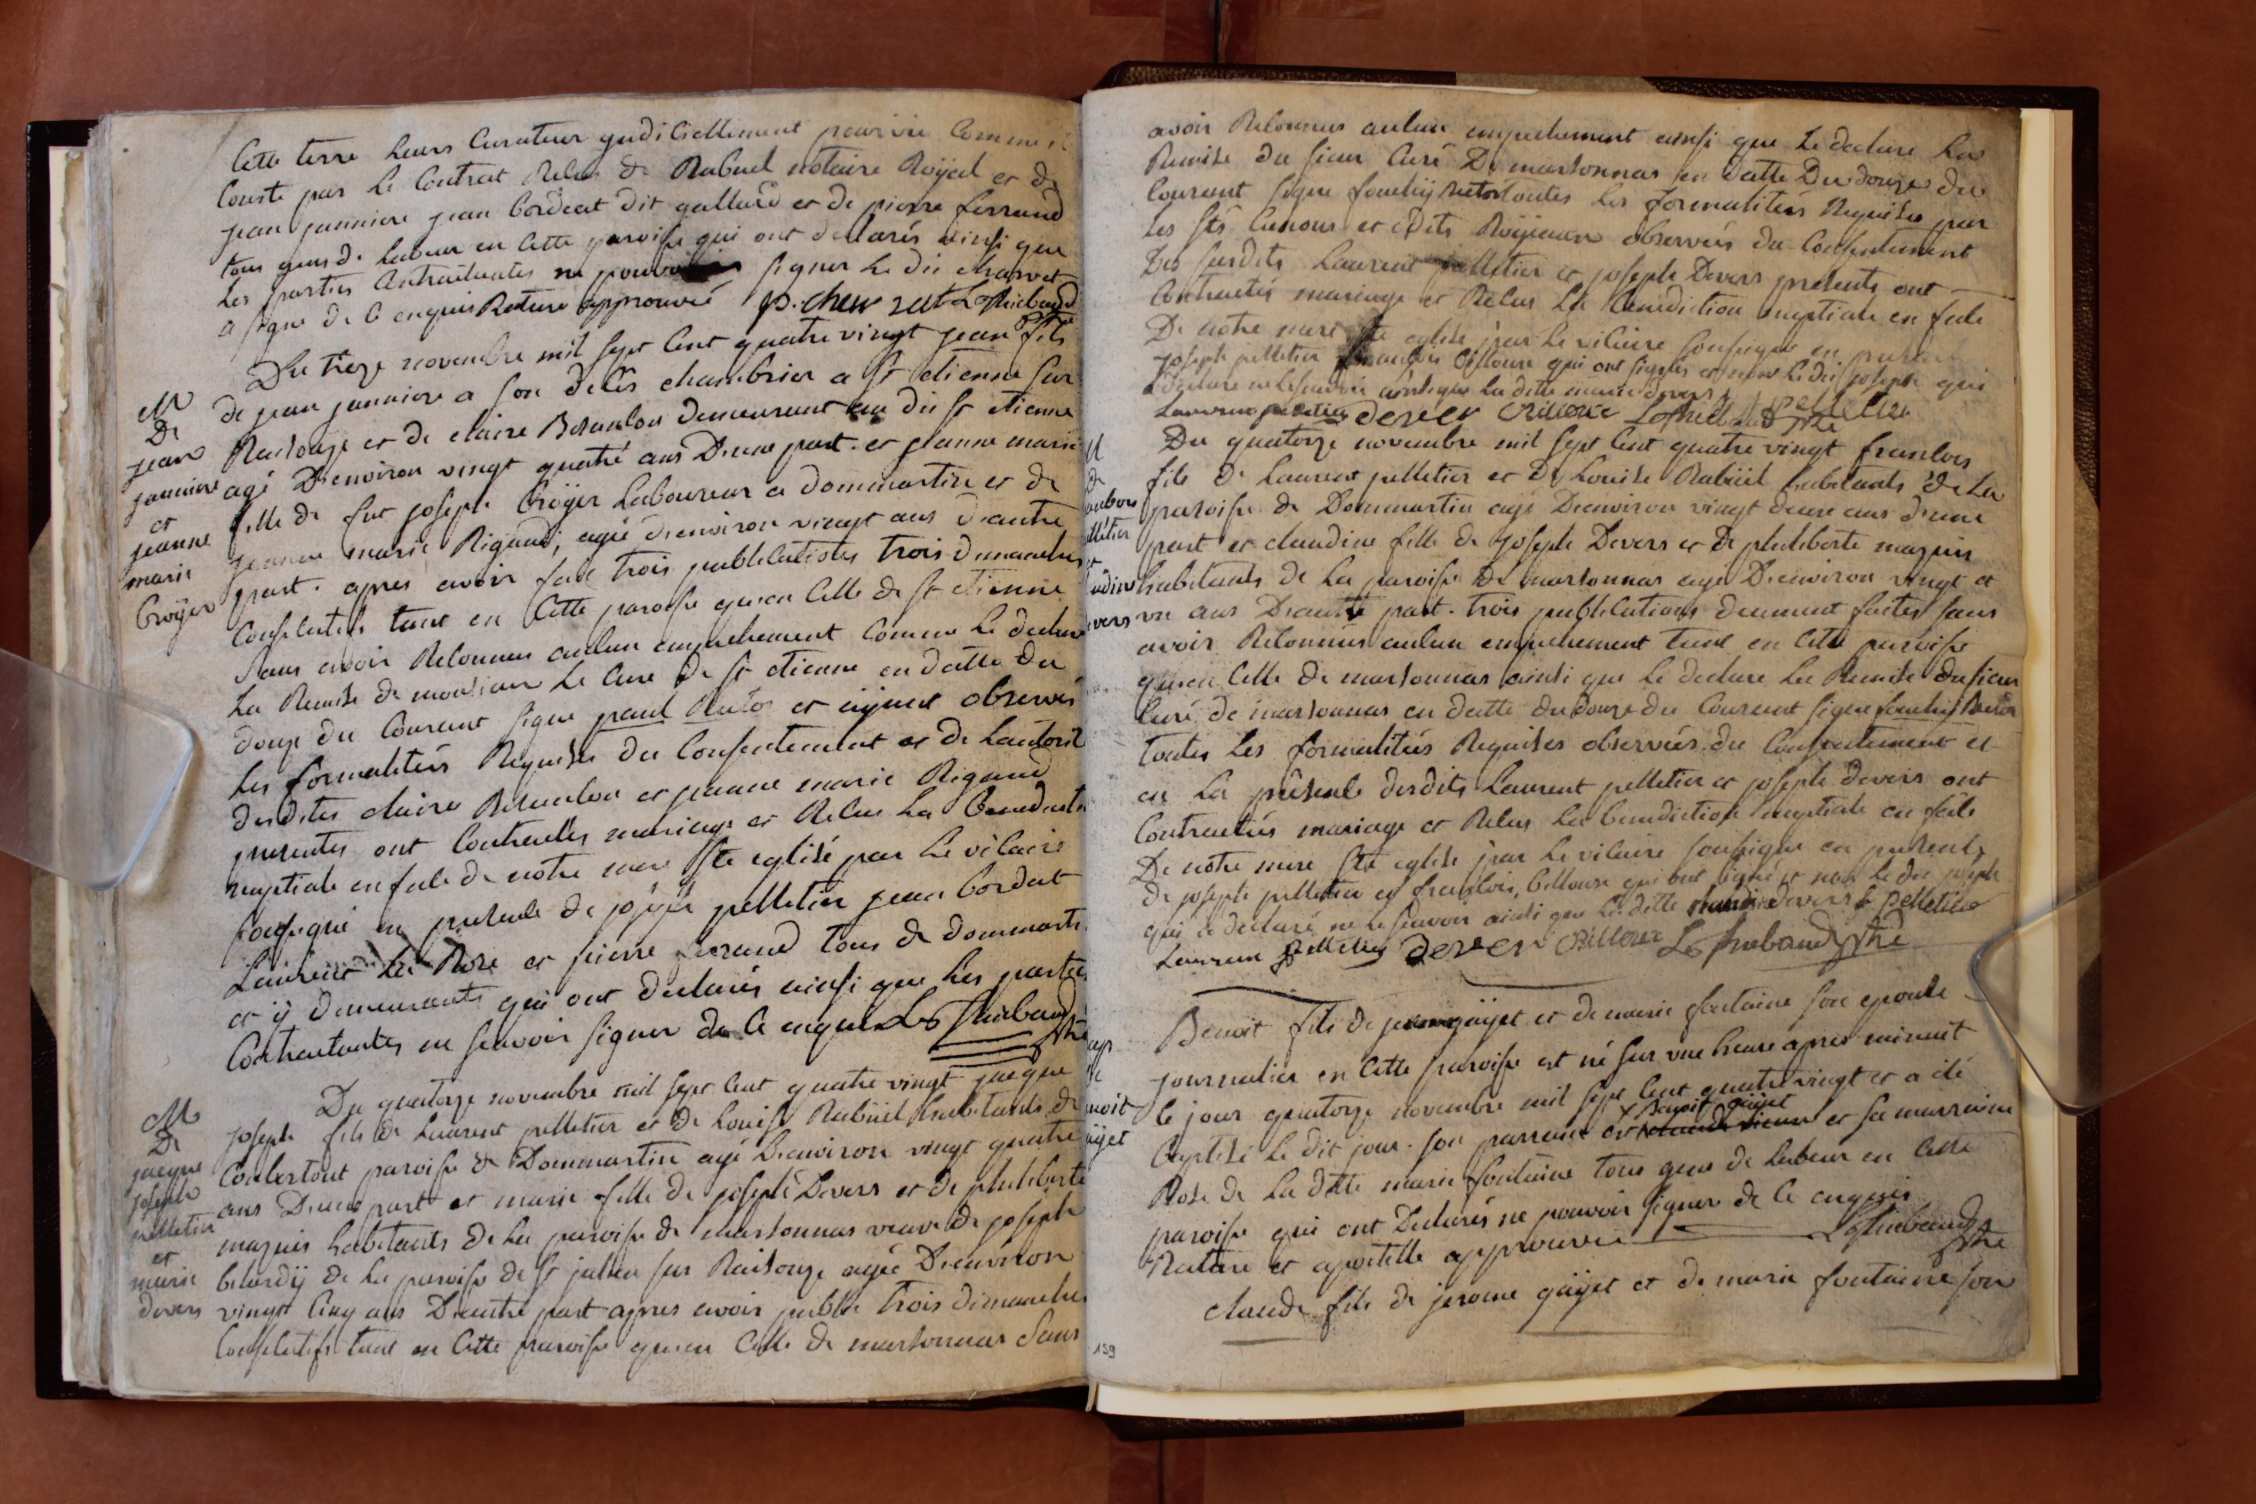 Cette terre leurs Curateur judiciellement pourvu Comme il
Conste par le Contrat Relus de Rabuel notaire Royal et de
jean janniere jean Cordeat dit gallurd et de pierre ferrand
tous gens de labeur en Cette paroisse qui ont declarés ainsi que
les parties Contractantes ne pouvoir signer le dit charvet
a signe de Ce enquis Rature approuvée p. cher Lothiebaud
Du treze novembre mil sept Cent quatre vingt jean fils
de jean janniere a son deces chambrier a st etienne sur
Raisouze et de claire Besanlon demeurant au dit st etienne
agé D'environ vingt quatre ans D'une part. et jeanne marie
fille de fut joseph Croÿer Laboureur a dommartin et de
jeanne marie Rigaud, agée d'environ vingt ans d'autre
part. apres avoir fait trois publications trois dimanches
Consecutifs tant en Cette paroisse qu'en Celle de st etienne
sans avoir Reconnus aucun empechement Comme le declare
La Remise de monsieur le Cure de st etienne en datte du
douze du Courent signe paul Ruto et aÿent observés
les formalitées Requises du Consentement et de L'autorit
desdites claire Besanlon et jeanne marie Rigaud
presentes ont Contractés mariage et Relus La Benediction
nuptiale en face de notre mere ste eglise par le vicaire
soussigné en presence de joseph pelletier jean Cordeat
Laurent La Rose et pierre ferrand tous de dommartin
et ÿ demeurants qui ont declarés ainsi que les parties
Contractantes ne scavoir signer de Ce enquis Lothiebaud
ptre
M
De
jean
janniere
et
jeanne
marie
Croÿer
Du quatorze novembre mil sept Cent quatre vingt jacque
joseph fils de Laurent pelletier et de Louise Rabüel habitants de
Conbertout paroisse de Dommartin agé D'environ vingt quatre
ans D'une part et marie fille de joseph Devers et de philiberte
mazuis habitants de la paroisse de marsonnas veuve de joseph
belordÿ de la paroisse de st julien sur Raisouze agée D'environ
vingt Cinq ans D'autre part apres avoir publié trois dimanches
Consecutifs tant en Cette paroisse qu'en Celle de marsonnas sans
M
De
jacque
joseph
pelletier
et
marie
devers
avoir Reconnus aucun empechement ainsi que Le declare La
Remise du sieur Curé De marsonnas en datte Du douze du
Courent signe toutes les formalitées Requises par
les sts Canons et edits Roÿeaux observées du Consentement
Des susdits Laurent pelletier et joseph Devers presents ont
Contractés mariage et Relus La benediction nuptiale en face
De notre mere ste eglise par Le vicaire soussigné en presence
joseph pelletier francois billoux qui ont signés et non Le dit joseph qui
a declare ne le scavoir ainsi que La dite marie devers
Laurens pelletier dever Lothiebaud ptre pelletier
Du quatorze novembre mil sept Cent quatre vingt francois
fils de Laurent pelletier et De Louise Rabüel habitants de La
paroisse de Dommartin agé D'environ vingt deux ans d'une
part et claudine fille de joseph Devers et de philiberte mazuis
habitants de La paroisse De marsonnas agé D'environ vingt et
un ans D'autre part. trois publications deument faites sans
avoir Reconnus aucun empechement tant en Cette paroisse
qu'en Celle de marsonnas ainsi que Le declare La Remise du sieur
Curé de marsonnas en datte du douze du Courent signe
toutes Les formalitées Requises observées du Consentement et
en La presence desdits Laurent pelletier et joseph devers ont
Contractés mariage et Relus La benediction nuptiale en face
De notre mere ste eglise par Le vicaire soussigné en presence
de joseph pelletier et francois billoux qui ont signé et non Le dit joseph
qui a declaré ne le scavoir ainsi que La ditte devers pelletier
Laurens pelletier dever Lothiebaud ptre
M
de
pelletier
et
devers
Benoit fils de jerome gaÿet et de marie fontaine son epouse
journalier en Cette paroisse est né sur une heure apres minuit
Le jour quatorze novembre mil sept Cent quatre vingt et a été
Baptisé Le dit jour. son parrain est Benoit gaÿet et sa marraine
Rose de La ditte marie fontaine tous gens de labeur en Cette
paroisse qui ont Declarés ne pouvoir signer de Ce enquis
Rature et apostille approuvée Lothiebaud
ptre
noit
aÿet
claude fils de jerome gaÿet et de marie fontaine son
159